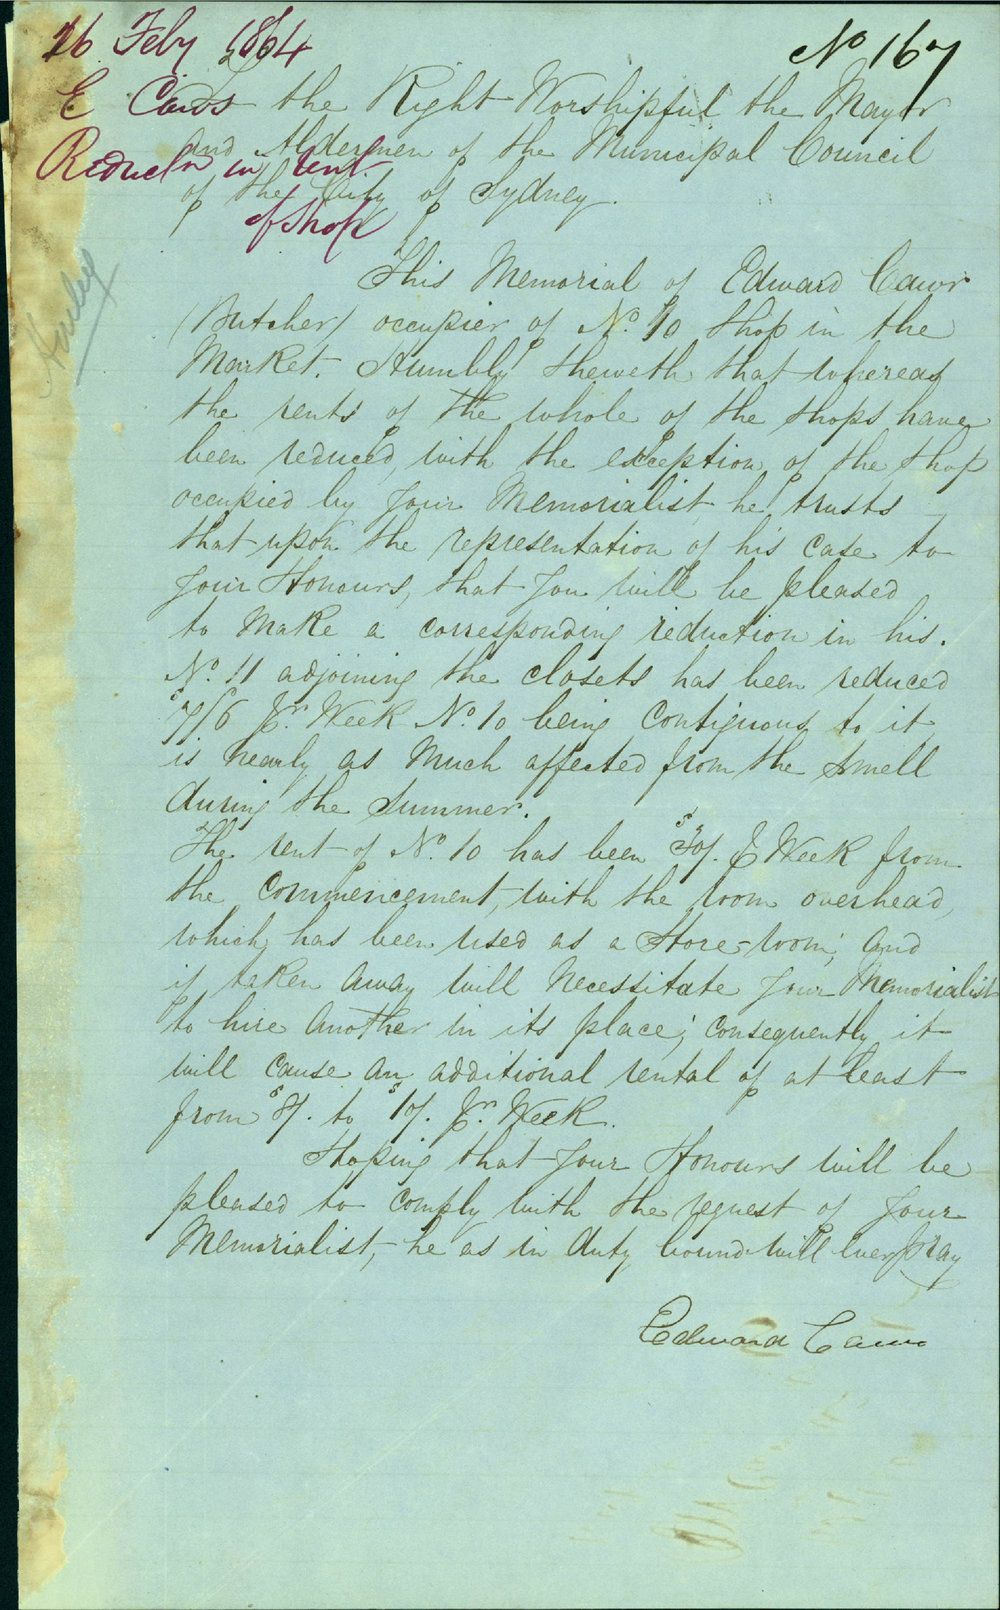 16 Feby 1864
No 167
E Caws
Reductn in rent
of Shop
To the Right Worshipful the Mayor
and Aldermen of the Municipal Council
of the City of Sydney.
This Memorial of Edward Caws
(Butcher) occupier of No. 10 Shop in the
Market. Humbly Sheweth that whereas
the rents of the whole of the shops have
been reduced, with the exception of the shop
occupied by your Memorialist, he trusts
that upon the representation of his case to
your Honours, that you will be pleased
to make a corresponding reduction in his.
No. 11 adjoining the closets has been reduced
7/6 Pr. Week No 10 being contiguous to it
is nearly as much affected from the smell
during the summer.
The rent of No. 10 has been 30/. P Week from
the commencement, with the room overhead,
which has been used as a store-room; and
if taken away will necessitate your Memorialist
to hire another in its place; consequently it
will cause an additional rental of at least
from 8/. to 10/. Pr. Week.
Hoping that your Honours will be
pleased to comply with the request of your
Memorialist, he as in duty bound will ever pray
Edward Caws